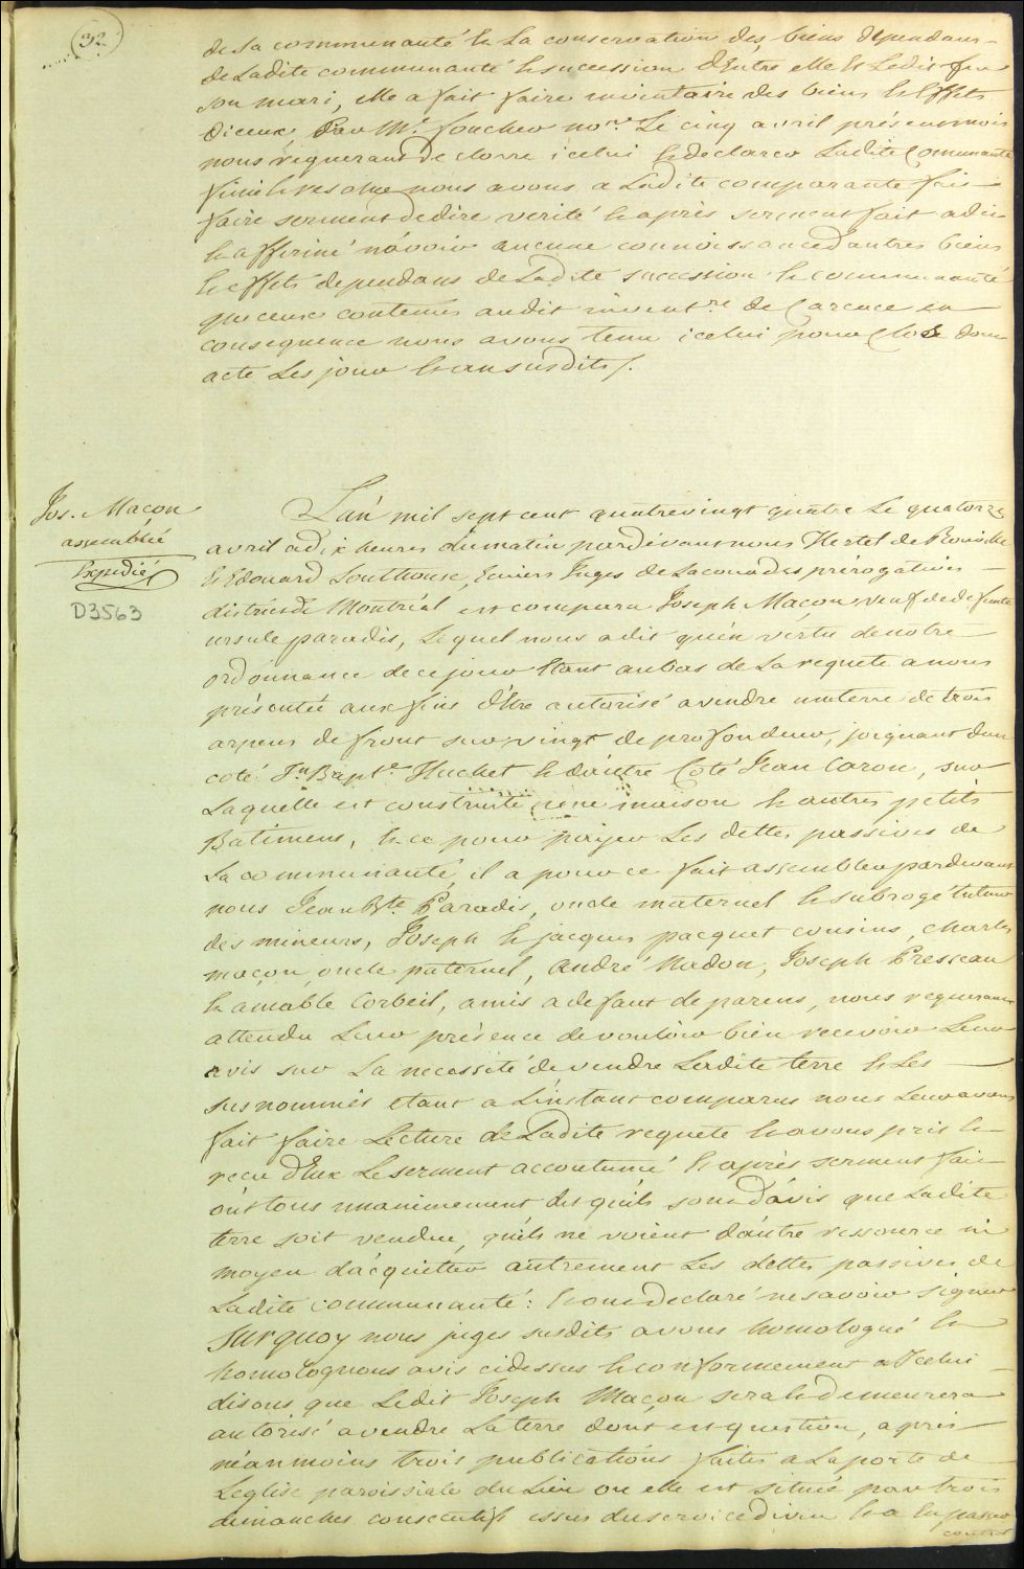 32
de sa communauté & la conservation des biens dépendans
de Ladite communauté & succession d'Entre elle & Ledit feu
son mari, elle a fait faire inventaire des biens & Effets
d'iceux Par Mr. foucher nore. Le cinq avril présent mois
nous requerant de clorre icelui & declarer Ladite Communauté
finie & resolue nous avons a Ladite comparante fait
faire serment de dire verité & après serment fait a dit
& affirmé n'avoir aucune connoissance d'autres biens
& effets dependans de Ladite succession & communauté
que ceux contenus audit inventre de Carence en
consequence nous avons tenu icelui pour Clos dont
acte Les jour & an susdits/.
Jos. Maçon
assemblée
Expedié
D3563
L'an mil sept cent quatrevingt quatre Le quatorze
avril a dix heures du matin pardevant nous Hertel de Rouville
& Edouard Southouse, Ecuiers Juges de La cour des prérogatives
district de Montréal est comparu Joseph Maçon veuf de defunte
ursule paradis, Lequel nous a dit qu'en vertu de notre
ordonnance de ce jour Etant au bas de La requete a nous
présentée aux fins d'Etre autorisé a vendre une terre de trois
arpens de front sur vingt de profondeur, joignant d'un
coté Jn Bapte. Huchet & d'autre Coté Jean Caron, sur
Laquelle est construite une maison & autres petits
Batimens, & ce pour payer Les dettes passives de
La communauté, il a pour ce fait assembler pardevant
nous Jean Bte. Paradis, oncle maternel & subrogé tuteur
des mineurs, Joseph & jacques pacquet cousins, charles
maçon, oncle paternel, André Nadon, Joseph Presseau
& amable Corbeil, amis a defaut de parens, nous requerant
attendu Leur présence de vouloir bien recevoir Leur
avis sur La necessité de vendre Ladite terre & Les
susnommés etant a L'instant comparus nous Leur avons
fait faire Lecture de Ladite requete & avons pris &
recu d'Eux Le serment accoutumé & après serment fait
ont tous unanimement dit qu'ils sont d'avis que Ladite
terre soit vendue, qu'ils ne voient d'autre ressource ni
moyen d'acquitter autrement Les dettes passives de
Ladite communauté: & ont declaré ne savoir signer
Sur quoy nous juges susdits avons homologué &
homologuons avis cidessus & conformement a Icelui
disons que Ledit Joseph Maçon sera & demeurera
autorisé a vendre La terre dont est question, après
néanmoins trois publications faites a La porte de
L'eglise paroissiale du Lieu ou elle est située par trois
dimanches consecutifs issue du service divin & a En passer
contrat